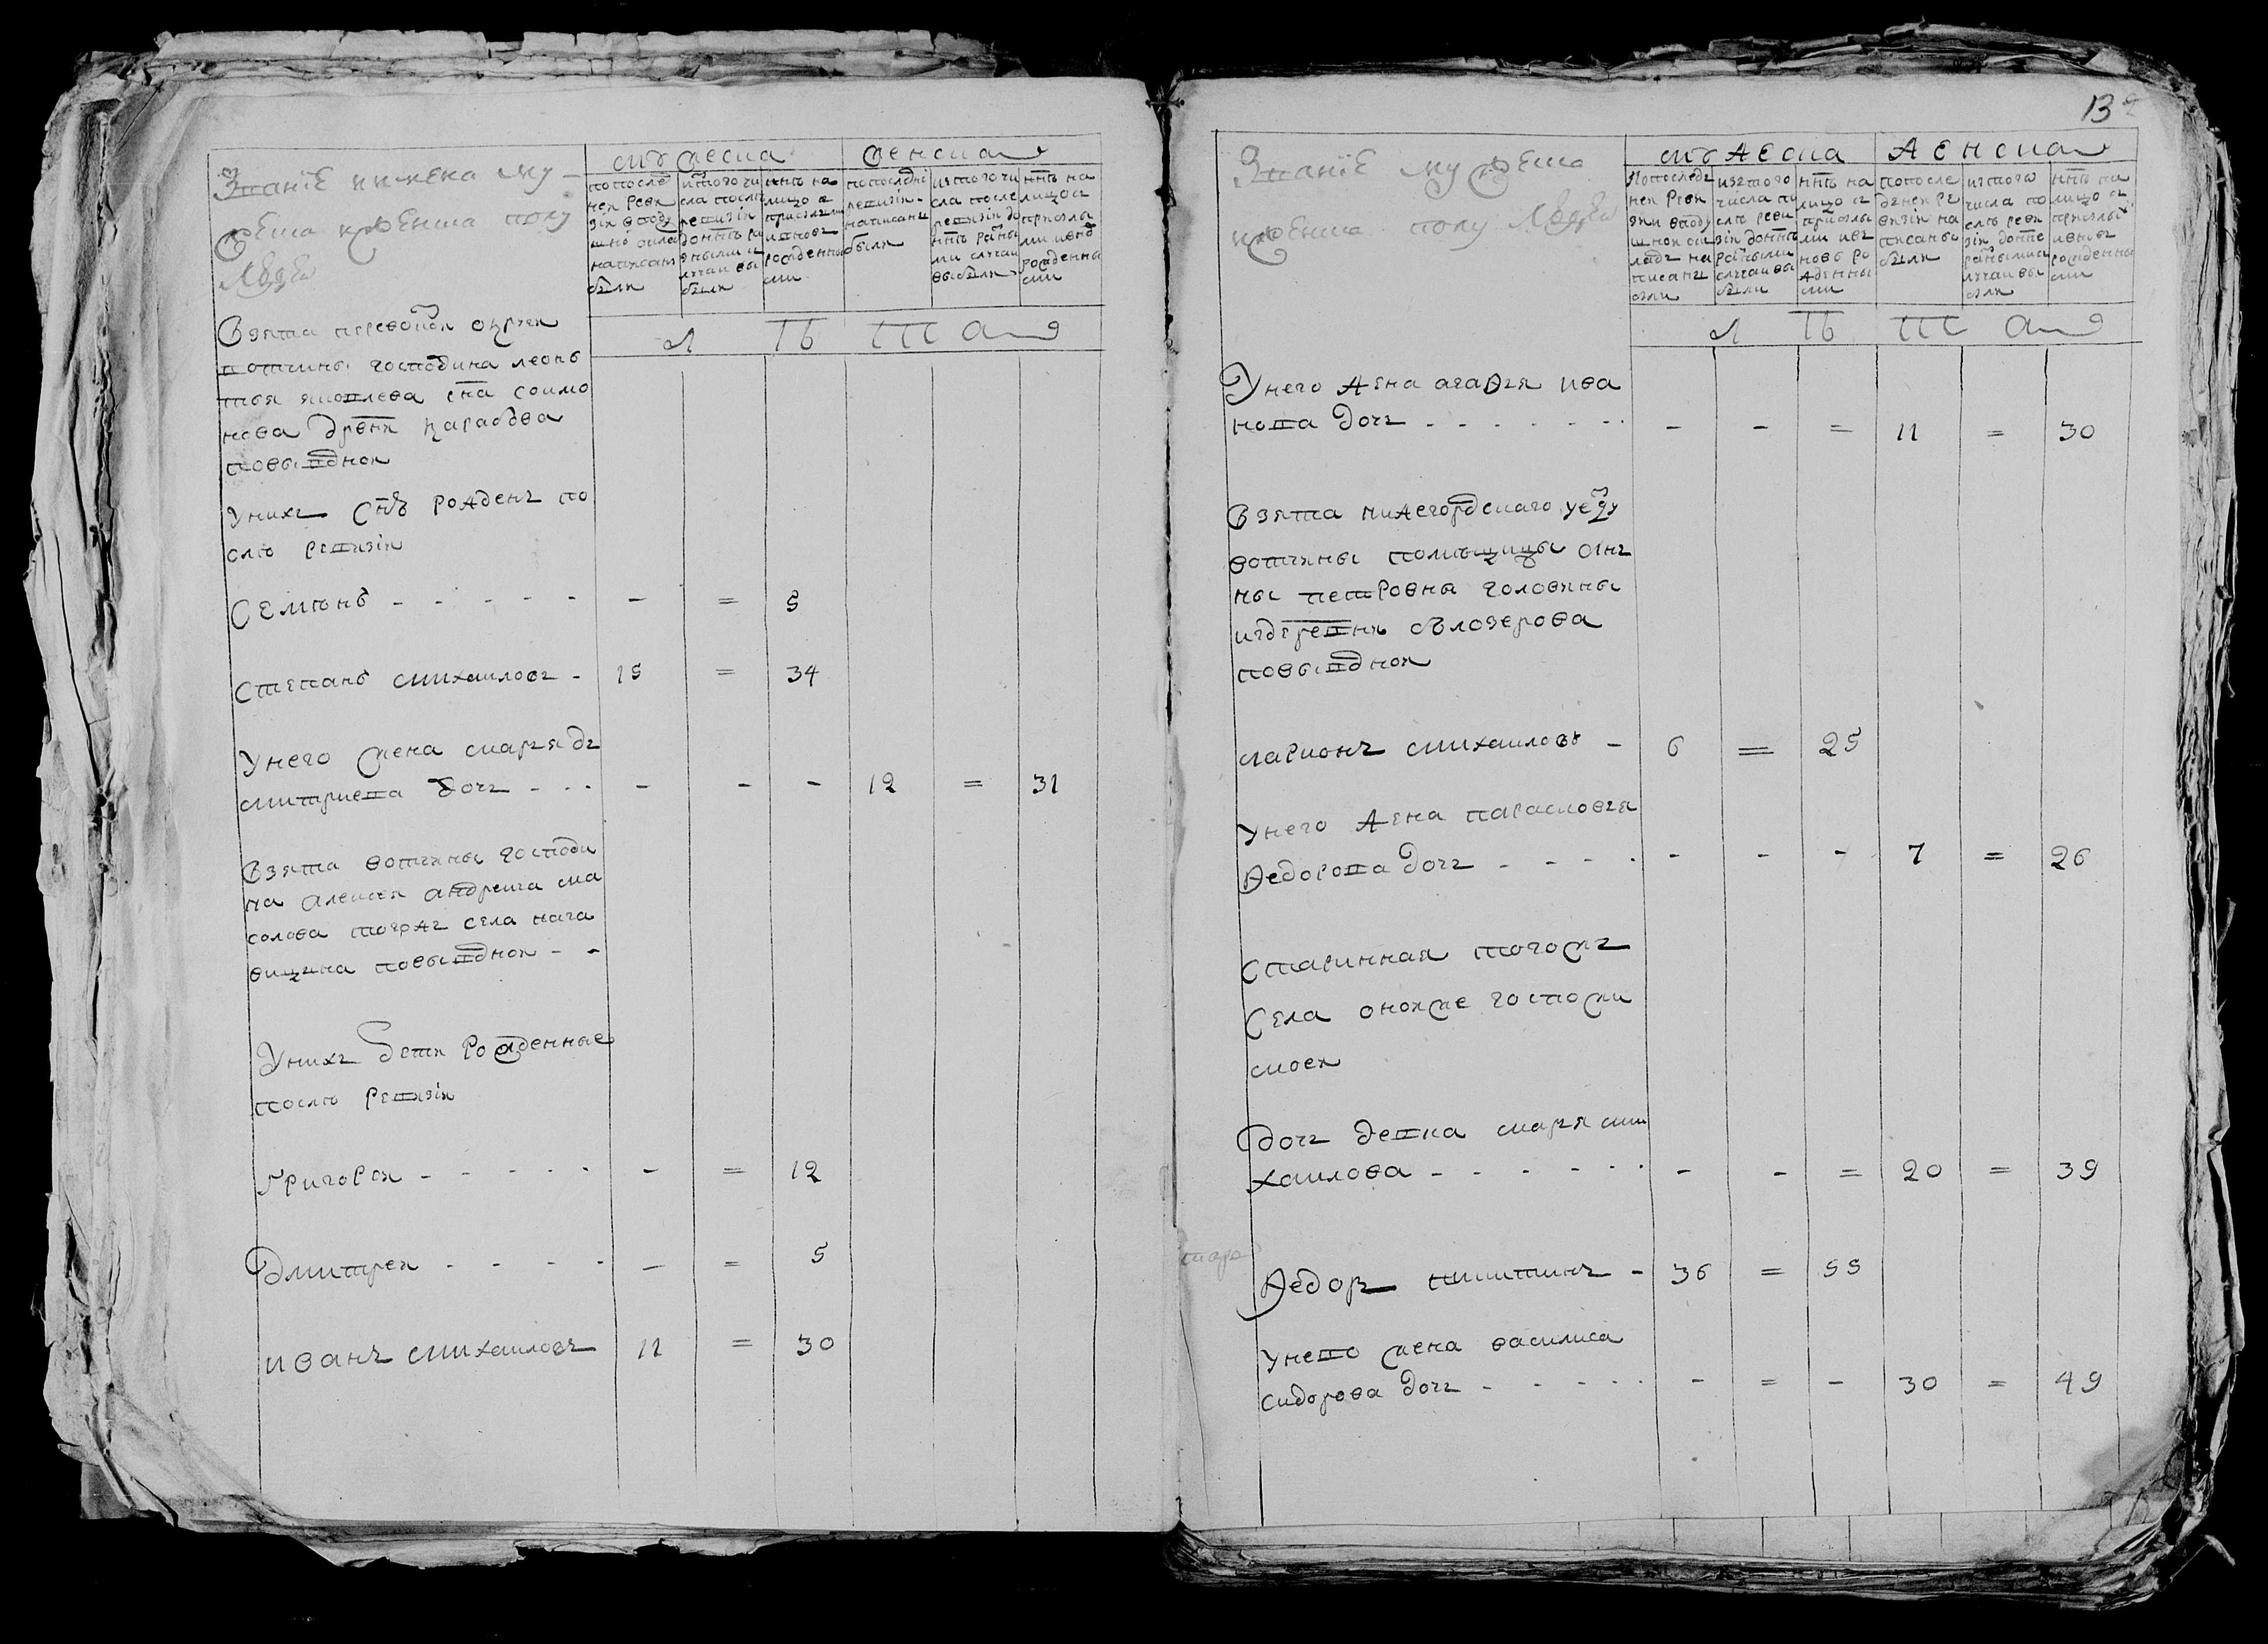 Званіе имена му
жеска и женска полу
людеи
мужеска
женска
попослѣ
неи реви
зіи вподу
шно окла
написан
были
истого чи
сла послѣ
ревизіи
доннѣ ра
зными
случаи вы
были
ннѣ на
лицо с
приезжими
и вновь
рожденны
ми
попоследнеи
ревизіи
написаны
были
изтого чи
сла после
ревизіи до
ннѣ разны
ми случаи
выбыли
ннѣ на
лицо с
приезжи
ми и внов
рожденны
ми
Л Ѣ Т А
Взята
вотчины господина леонъ
тья яковлева сна соимо
нова дрвни
повыводнои
Унихъ снъ рожденъ по
слѣ ревизіи
Семионъ - - - - - - = 5
Степанъ михаиловъ - 15 = 34
Унего жена марья дъ
митриева дочь - - - - - - 12 = 31
Взята вотчины господи
на алексея андреича ма
солова тогожъ села нага
вицына повыводнои - -
Унихъ дети рожденные
послѣ ревизіи
Григореи - - - - - - = 12
Дмитреи - - - - - = 5
иванъ михаиловъ 11 = 30
13
Званіе мужеска
иженска полу людеи
мужеска
женска
Попоследъ
неи реви
зии вподу
шнои ок
ладъ на
писаны
были
изтого
числа по
слѣ реви
зіи доннѣ
разными
случаи вы
были
ннѣ на
лицо съ
приезжи
ми и въ
новь ро
жденны
ми
попосле
днеи ре
визіи на
писаны
были
изтого
числа по
слѣ реви
зіи донне
разными с
лучаи вы
были
ннѣ на
лицо съ
приезжи
и вновь
рожденны
ми
Л Ѣ Т А
Унего жена агафья ива
нова дочь - - - - - - - - - = 11 = 30
Взята нижегордскаго уезду
вотчины помѣщицы онъ
ны петровны головины
издеревни бѣлозерова
повыводнои
ларионъ михаиловъ - 6 = 25
Унего жена парасковья
Ѳедорова дочь - - - - - - - 7 = 26
Старинная тогожъ
Села оноиже госпожи
моеи
Дочь девка марья ми
хаилова - - - - - - - - = 20 = 39
Ѳедоръ никитинъ - 36 = 55
Унево жена василиса
сидорова дочь - - - - - - = - 30 = 49